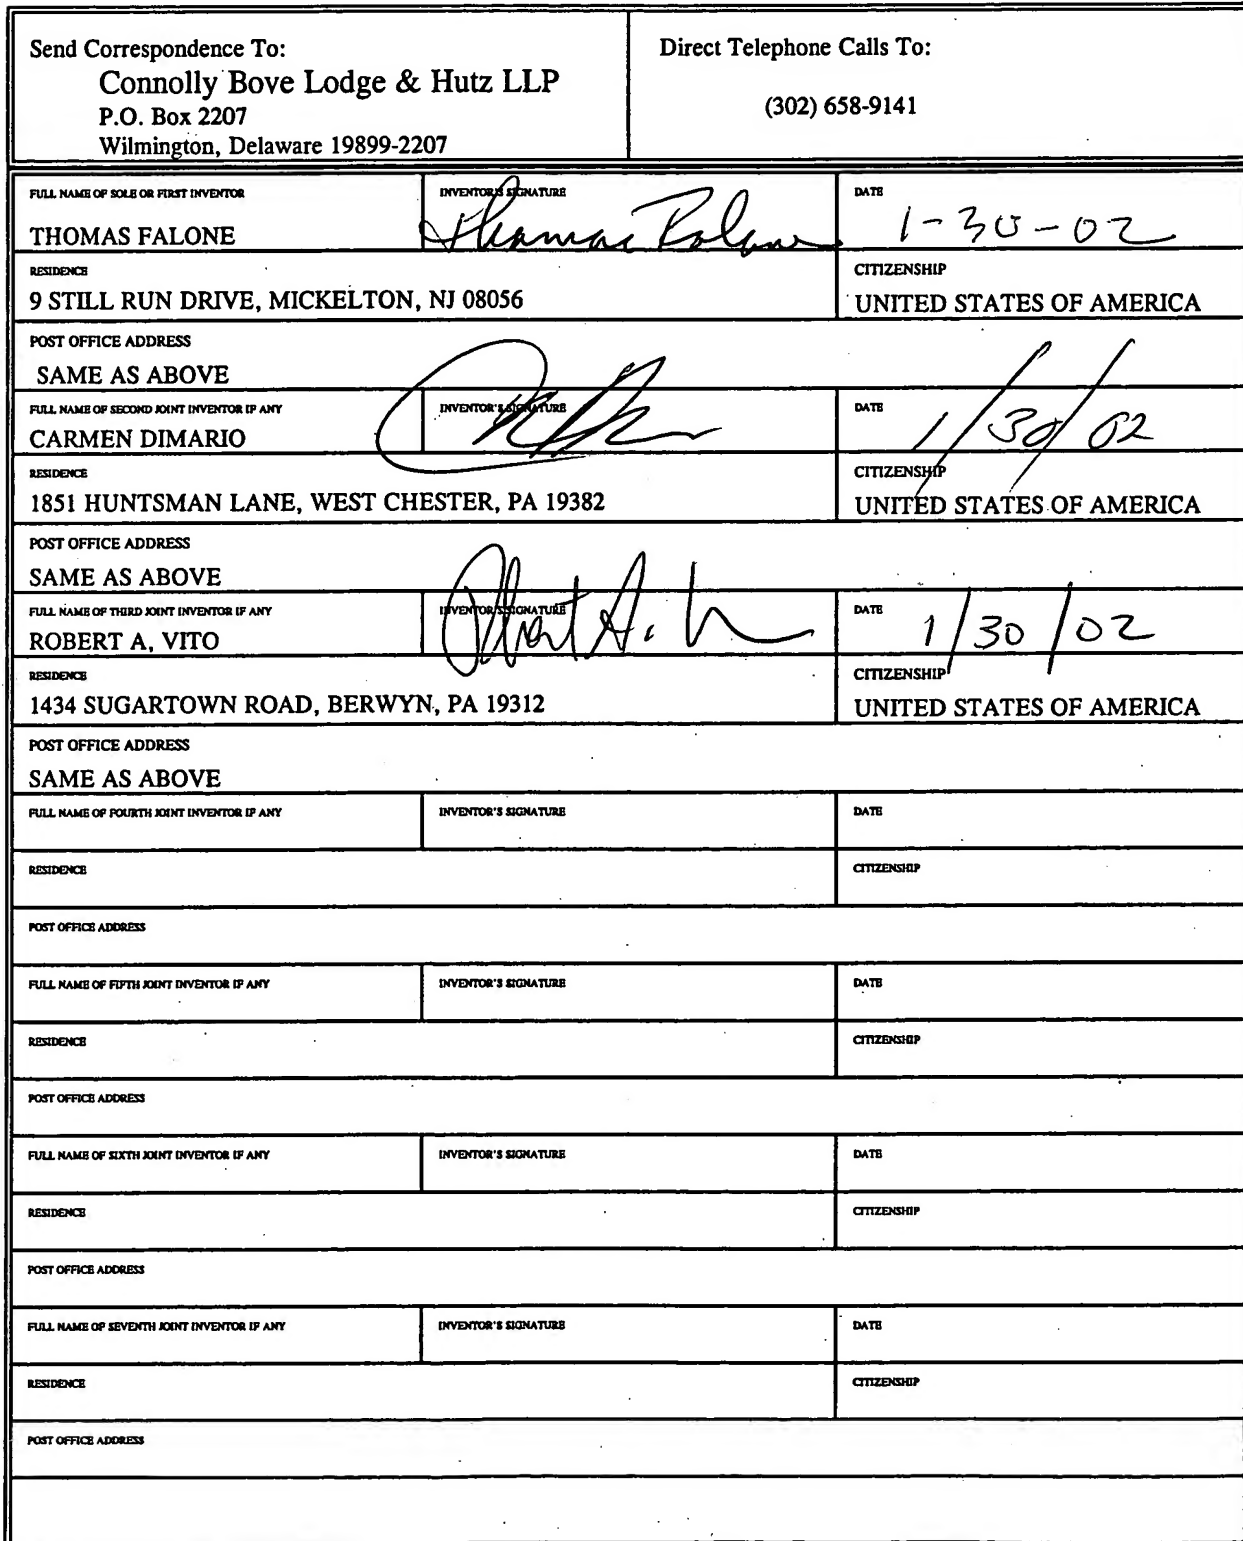 Send Correspondence To:
Connolly Bove Lodge & Hutz LLP
P.O. Box 2207
Wilmington, Delaware 19899-2207
Direct Telephone Calls To:
(302) 658-9141
FULL NAME OF SOLE OR FIRST INVENTOR
INVENTOR'S SIGNATURE
DATE
THOMAS FALONE
Thomas Falone
1-30-02
RESIDENCE
CITIZENSHIP
9 STILL RUN DRIVE, MICKELTON, NJ 08056
UNITED STATES OF AMERICA
POST OFFICE ADDRESS
SAME AS ABOVE
FULL NAME OF SECOND JOINT INVENTOR IF ANY
INVENTOR'S SIGNATURE
DATE
CARMEN DIMARIO
1/30/02
RESIDENCE
CITIZENSHIP
1851 HUNTSMAN LANE, WEST CHESTER, PA 19382
UNITED STATES OF AMERICA
POST OFFICE ADDRESS
SAME AS ABOVE
FULL NAME OF THIRD JOINT INVENTOR IF ANY
INVENTOR'S SIGNATURE
DATE
ROBERT A, VITO
Robert A.
1/30/02
RESIDENCE
CITIZENSHIP
1434 SUGARTOWN ROAD, BERWYN, PA 19312
UNITED STATES OF AMERICA
POST OFFICE ADDRESS
SAME AS ABOVE
FULL NAME OF FOURTH JOINT INVENTOR IF ANY
INVENTOR'S SIGNATURE
DATE
RESIDENCE
CITIZENSHIP
POST OFFICE ADDRESS
FULL NAME OF FIFTH JOINT INVENTOR IF ANY
INVENTOR'S SIGNATURE
DATE
RESIDENCE
CITIZENSHIP
POST OFFICE ADDRESS
FULL NAME OF SIXTH JOINT INVENTOR IF ANY
INVENTOR'S SIGNATURE
DATE
RESIDENCE
CITIZENSHIP
POST OFFICE ADDRESS
FULL NAME OF SEVENTH JOINT INVENTOR IF ANY
INVENTOR'S SIGNATURE
DATE
RESIDENCE
CITIZENSHIP
POST OFFICE ADDRESS